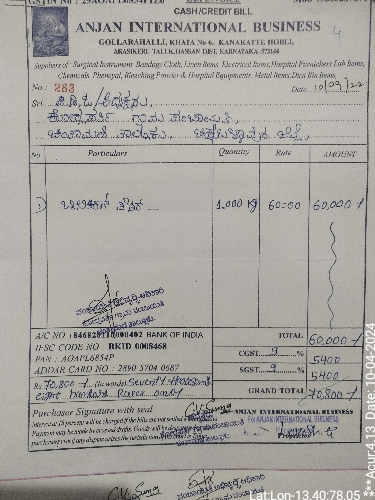 CASH/CREDIT BILL
ANJAN INTERNATIONAL BUSINESS
GOLLARAHALLI, KHATA No 6, KANAKATTE HOBLI,
ARASIKERE TALUK, HASSAN DIST, KARNATAKA-573144
Suppliers of: Surgical Instrument, Bandage Cloth, Linen Items, Electrical Items, Hospital Furnichers Lab Items,
Chemicals, Phenaial, Bleeching Powder & Hospital Equipments, Metal Items, Dust Bin Items,
No: 283 Date. 10/03/22
Sri ಪಿ.ಡಿ.ಓ/ಅಧ್ಯಕ್ಷರು,
ಗ್ರಾಮ ಪಂಚಾಯಿತಿ,
ಚಿಂತಾಮಣಿ ತಾಲ್ಲೂಕು, ಚಿಕ್ಕಬಳ್ಳಾಪುರ ಜಿಲ್ಲೆ,
No Particulars Quantity Rate AMOUNT
1) ಬ್ಲೀಚಿಂಗ್ ಪೌಡರ್ 1,000 Kg 60=00 60,000/-
A/C NO : 846820110000402 BANK OF INDIA TOTAL 60,000-/
IFSC CODE NO : BKID 0008468 CGST 9 % 5400
PAN : AOAPL6854P
ADDAR CARD NO : 2890 5704 0687 SGST 9 % 5400
Rs 70,800-/ (In words) Seventy Thousand
eight hundred Rupees only GRAND TOTAL 70,800-/
Purchaser Signature with seal ANJAN INTERNATIONAL BUSINESS
For ANJAN INTERNATIONAL BUSINESS
Proprietor
Date: 10-04-2024
Lat:Lon-13.40:78.05